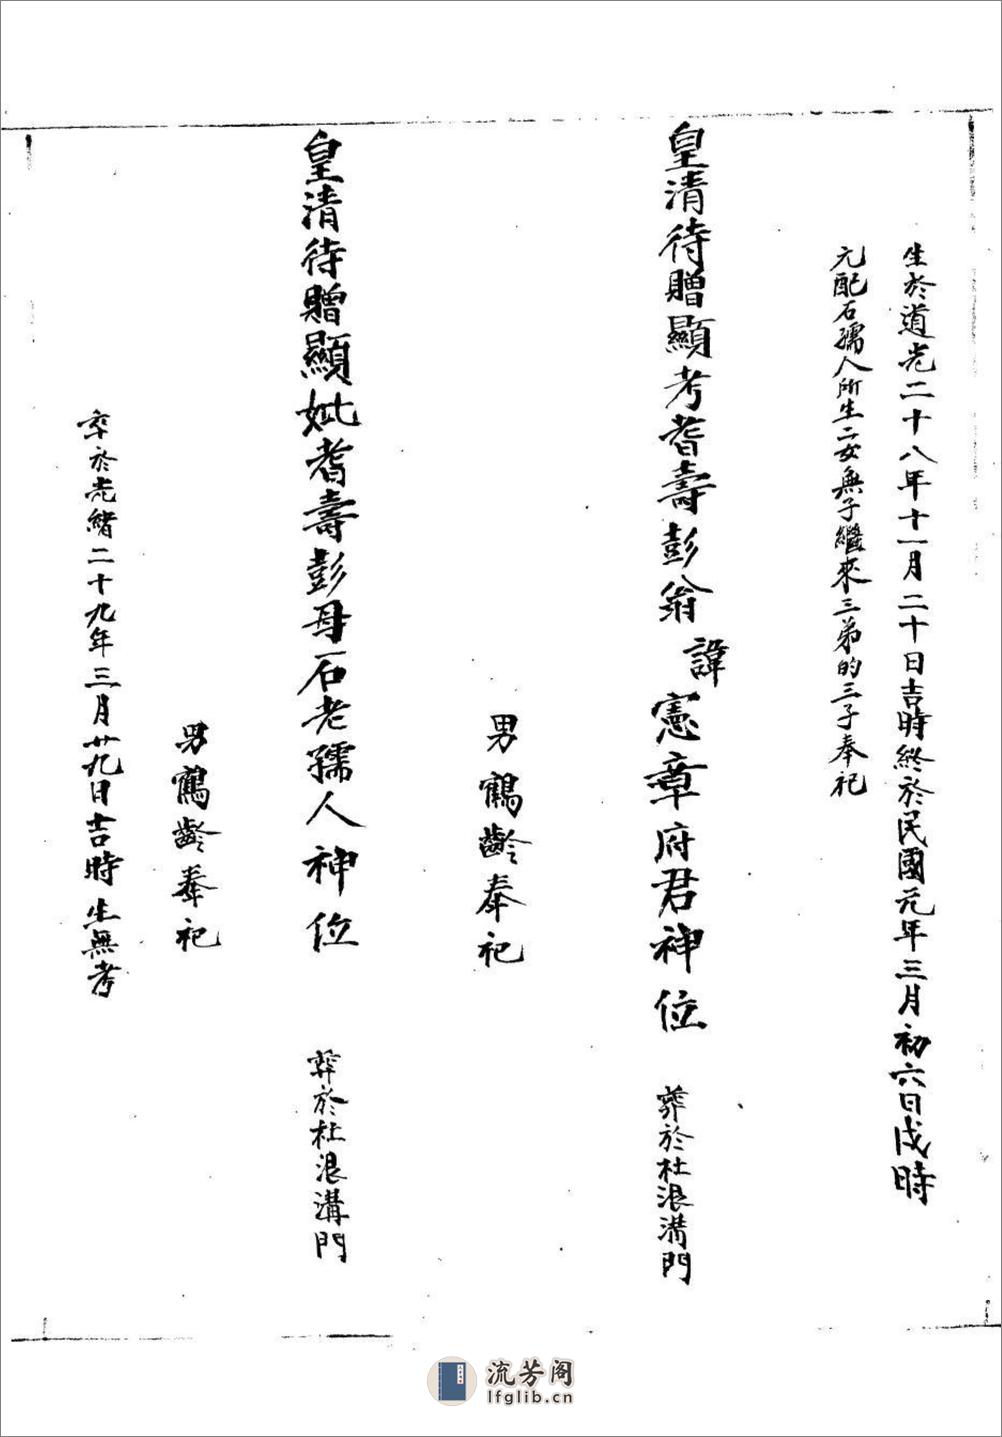 生於道光二十八年十一月二十日吉時終於民國元年三月初六日戌時
元配石孺人所生二女無子繼來三弟的三子奉祀
皇清待贈顯考耆壽彭翁諱憲章府君神位
葬於杜浪溝門
男鶴齡奉祀
皇清待贈顯妣耆壽彭母石老孺人神位
葬於杜浪溝門
男鶴齡奉祀
卒於光緒二十九年三月廿九日吉時生無考
流芳阁
lfglib.cn